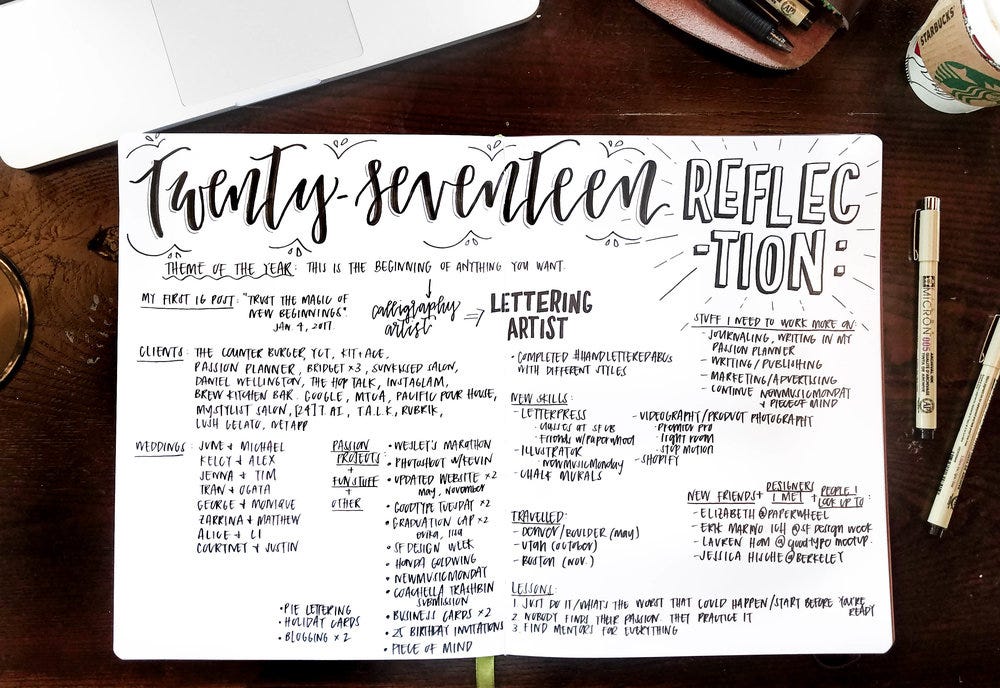 STARBUCKS
Twenty-seventeen
REFLEC
-TION:
THEME OF THE YEAR: THIS IS THE BEGINNING OF ANYTHING YOU WANT.
MY FIRST IG POST: "TRUST THE MAGIC OF
NEW BEGINNINGS".
JAN. 4, 2017.
calligraphy
artist
LETTERING
ARTIST
CLIENTS: THE COUNTER BURGER, YCT, KIT+ACE,
PASSION PLANNER, BRIDGET ×3, SUNKISSED SALON,
DANIEL WELLINGTON, THE HOP TALK, INSTAGLAM,
BREW KITCHEN BAR. GOOGLE, MTCA, PACIFIC POUR HOUSE,
MYSTYLIST SALON, [24]7. AI, T.A.L.K, RUBRIK,
LUSH GELATO, NETAPP
WEDDINGS: JUNE + MICHAEL
KELCY + ALEX
JENNA + TIM
TRAN + OGATA
GEORGE + MONIQUE
ZARRINA + MATTHEW
ALICE + LI
COURTNEY + JUSTIN
PASSION
PROJECTS
+
FUN STUFF
+
OTHER
• WESLEY'S MARATHON
• PHOTOSHOOT W/KEVIN
• UPDATED WEBSITE ×2
MAY, NOVEMBER
• GOODTYPE TUESDAY ×2
• GRADUATION CAP ×2
• SF DESIGN WEEK
• HONDA GOLDWING
• NEWMUSICMONDAY
• COACHELLA TRASHBIN
SUBMISSION
• BUSINESS CARDS ×2
• 25 BIRTHDAY INVITATIONS
• PIECE OF MIND
• PIE LETTERING
• HOLIDAY CARDS
• BLOGGING ×2
• COMPLETED #HANDLETTEREDABCS
WITH DIFFERENT STYLES
NEW SKILLS:
- LETTERPRESS
- classes at SFCB
- Friends w/Paperwheel
- ILLUSTRATOR
- newmusicmonday
- CHALK MURALS
- VIDEOGRAPHY/PRODUCT PHOTOGRAPHY
- Premier pro
- light room
- stop motion
- SHOPIFY
STUFF I NEED TO WORK MORE ON:
- JOURNALING, WRITING IN MY
PASSION PLANNER
- WRITING/PUBLISHING
- MARKETING/ADVERTISING
- CONTINUE NEWMUSICMONDAY
+ PIECE OF MIND
TRAVELLED:
- DENVER/BOULDER (MAY)
- UTAH (OCTOBER)
- BOSTON (NOV.)
NEW FRIENDS + DESIGNERS I MET + PEOPLE I LOOK UP TO:
- ELIZABETH @PAPERWHEEL
- ERIK MARINOVICH @SF Design week
- LAUREN HOM @goodtype meetup
- JESSICA HISCHE @BERKELEY
LESSONS:
1. JUST DO IT/WHATS THE WORST THAT COULD HAPPEN/START BEFORE YOU'RE
READY
2. NOBODY FINDS THEIR PASSION. THEY PRACTICE IT
3. FIND MENTORS FOR EVERYTHING
MICRON 005